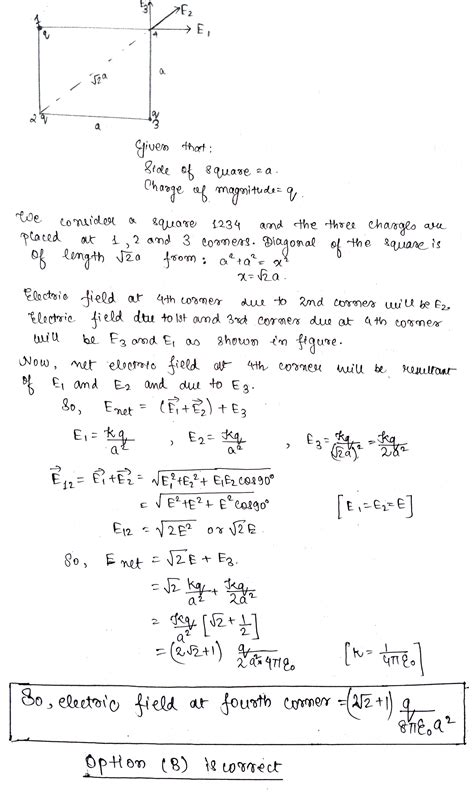 E3
E2
1
q
4
E1
√2a
a
2 q
a
q
3
Given that:
Side of square = a.
Charge of magnitude = q.
We consider a square 1234 and the three charges are
placed at 1, 2 and 3 corners. Diagonal of the square is
of length √2a from: a² + a² = x²
x = √2a.
Electric field at 4th corner due to 2nd corner will be E2.
Electric field due to 1st and 3rd corner due at 4th corner
will be E3 and E1 as shown in figure.
Now, net electric field at 4th corner will be resultant
of E1 and E2 and due to E3.
So, Enet = (E⃗1 + E⃗2) + E3
E1 = kq/a² , E2 = kq/a² , E3 = kq/(√2a)² = kq/2a²
E⃗12 = E⃗1 + E⃗2 = √(E1² + E2² + E1E2 cos90°)
= √(E² + E² + E² cos90°) [E1 = E2 = E]
E12 = √(2E²) or √2E
So, Enet = √2E + E3.
= √2 kq/a² + kq/2a²
= kq/a² [√2 + 1/2]
= (2√2+1) q/2a² × 4πε0 [k = 1/4πε0]
So, electric field at fourth corner = (2√2+1) q/8πε0a²
Option (B) is correct